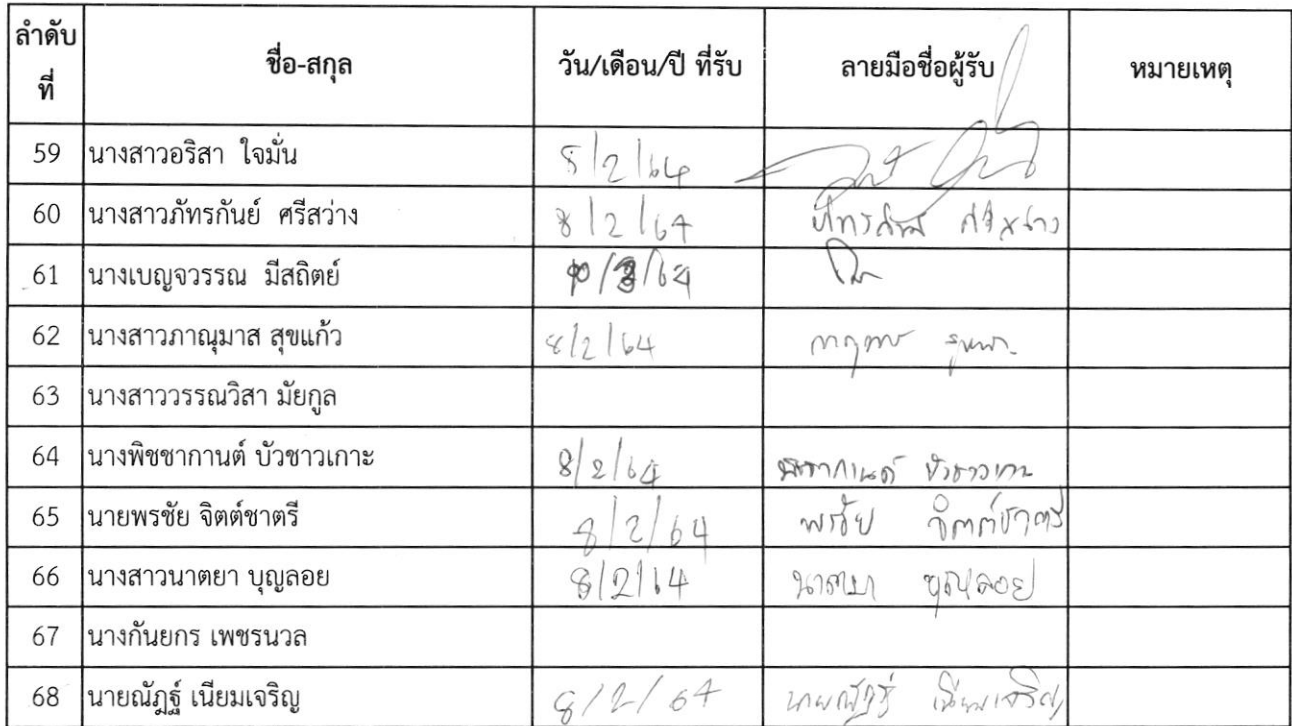 ลำดับที่ ชื่อ-สกุล วัน/เดือน/ปี ที่รับ ลายมือชื่อผู้รับ หมายเหตุ
59 นางสาวอริสา ใจมั่น 8/2/64
60 นางสาวภัทรกันย์ ศรีสว่าง 8/2/64
61 นางเบญจวรรณ มีสถิตย์
62 นางสาวภาณุมาส สุขแก้ว 8/2/64
63 นางสาววรรณวิสา มัยกูล
64 นางพิชชากานต์ บัวชาวเกาะ 8/2/64 พิชชากานต์ บัวชาวเกาะ
65 นายพรชัย จิตต์ชาตรี 8/2/64 พรชัย จิตต์ชาตรี
66 นางสาวนาตยา บุญลอย 8/2/64 นาตยา บุญลอย
67 นางกันยกร เพชรนวล
68 นายณัฏฐ์ เนียมเจริญ 8/2/64 นายณัฏฐ์ เนียมเจริญ